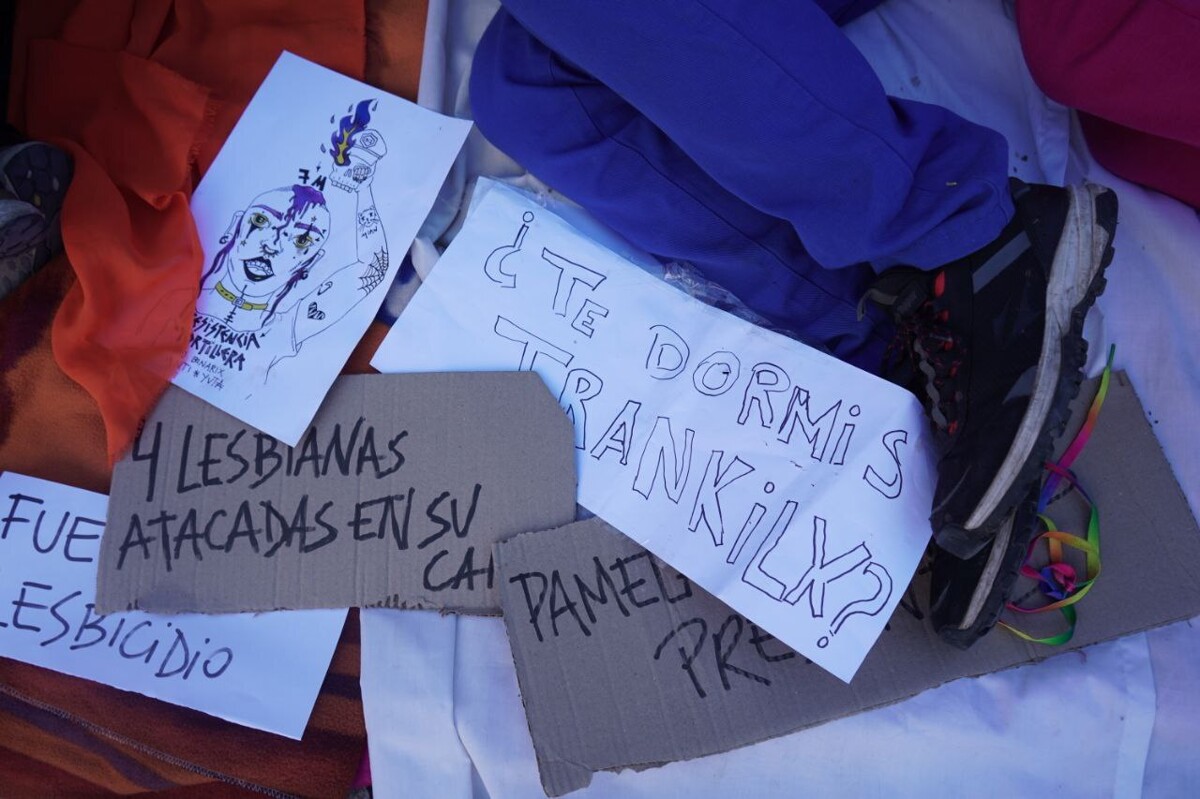 7M
ESISTENCIA
ORTILLERA
¿TE DORMiS
TRANKiLX?
4 LESBIANAS
ATACADAS EN SU
CA
FUE
LESBiCiDiO
PAMEL
PRE